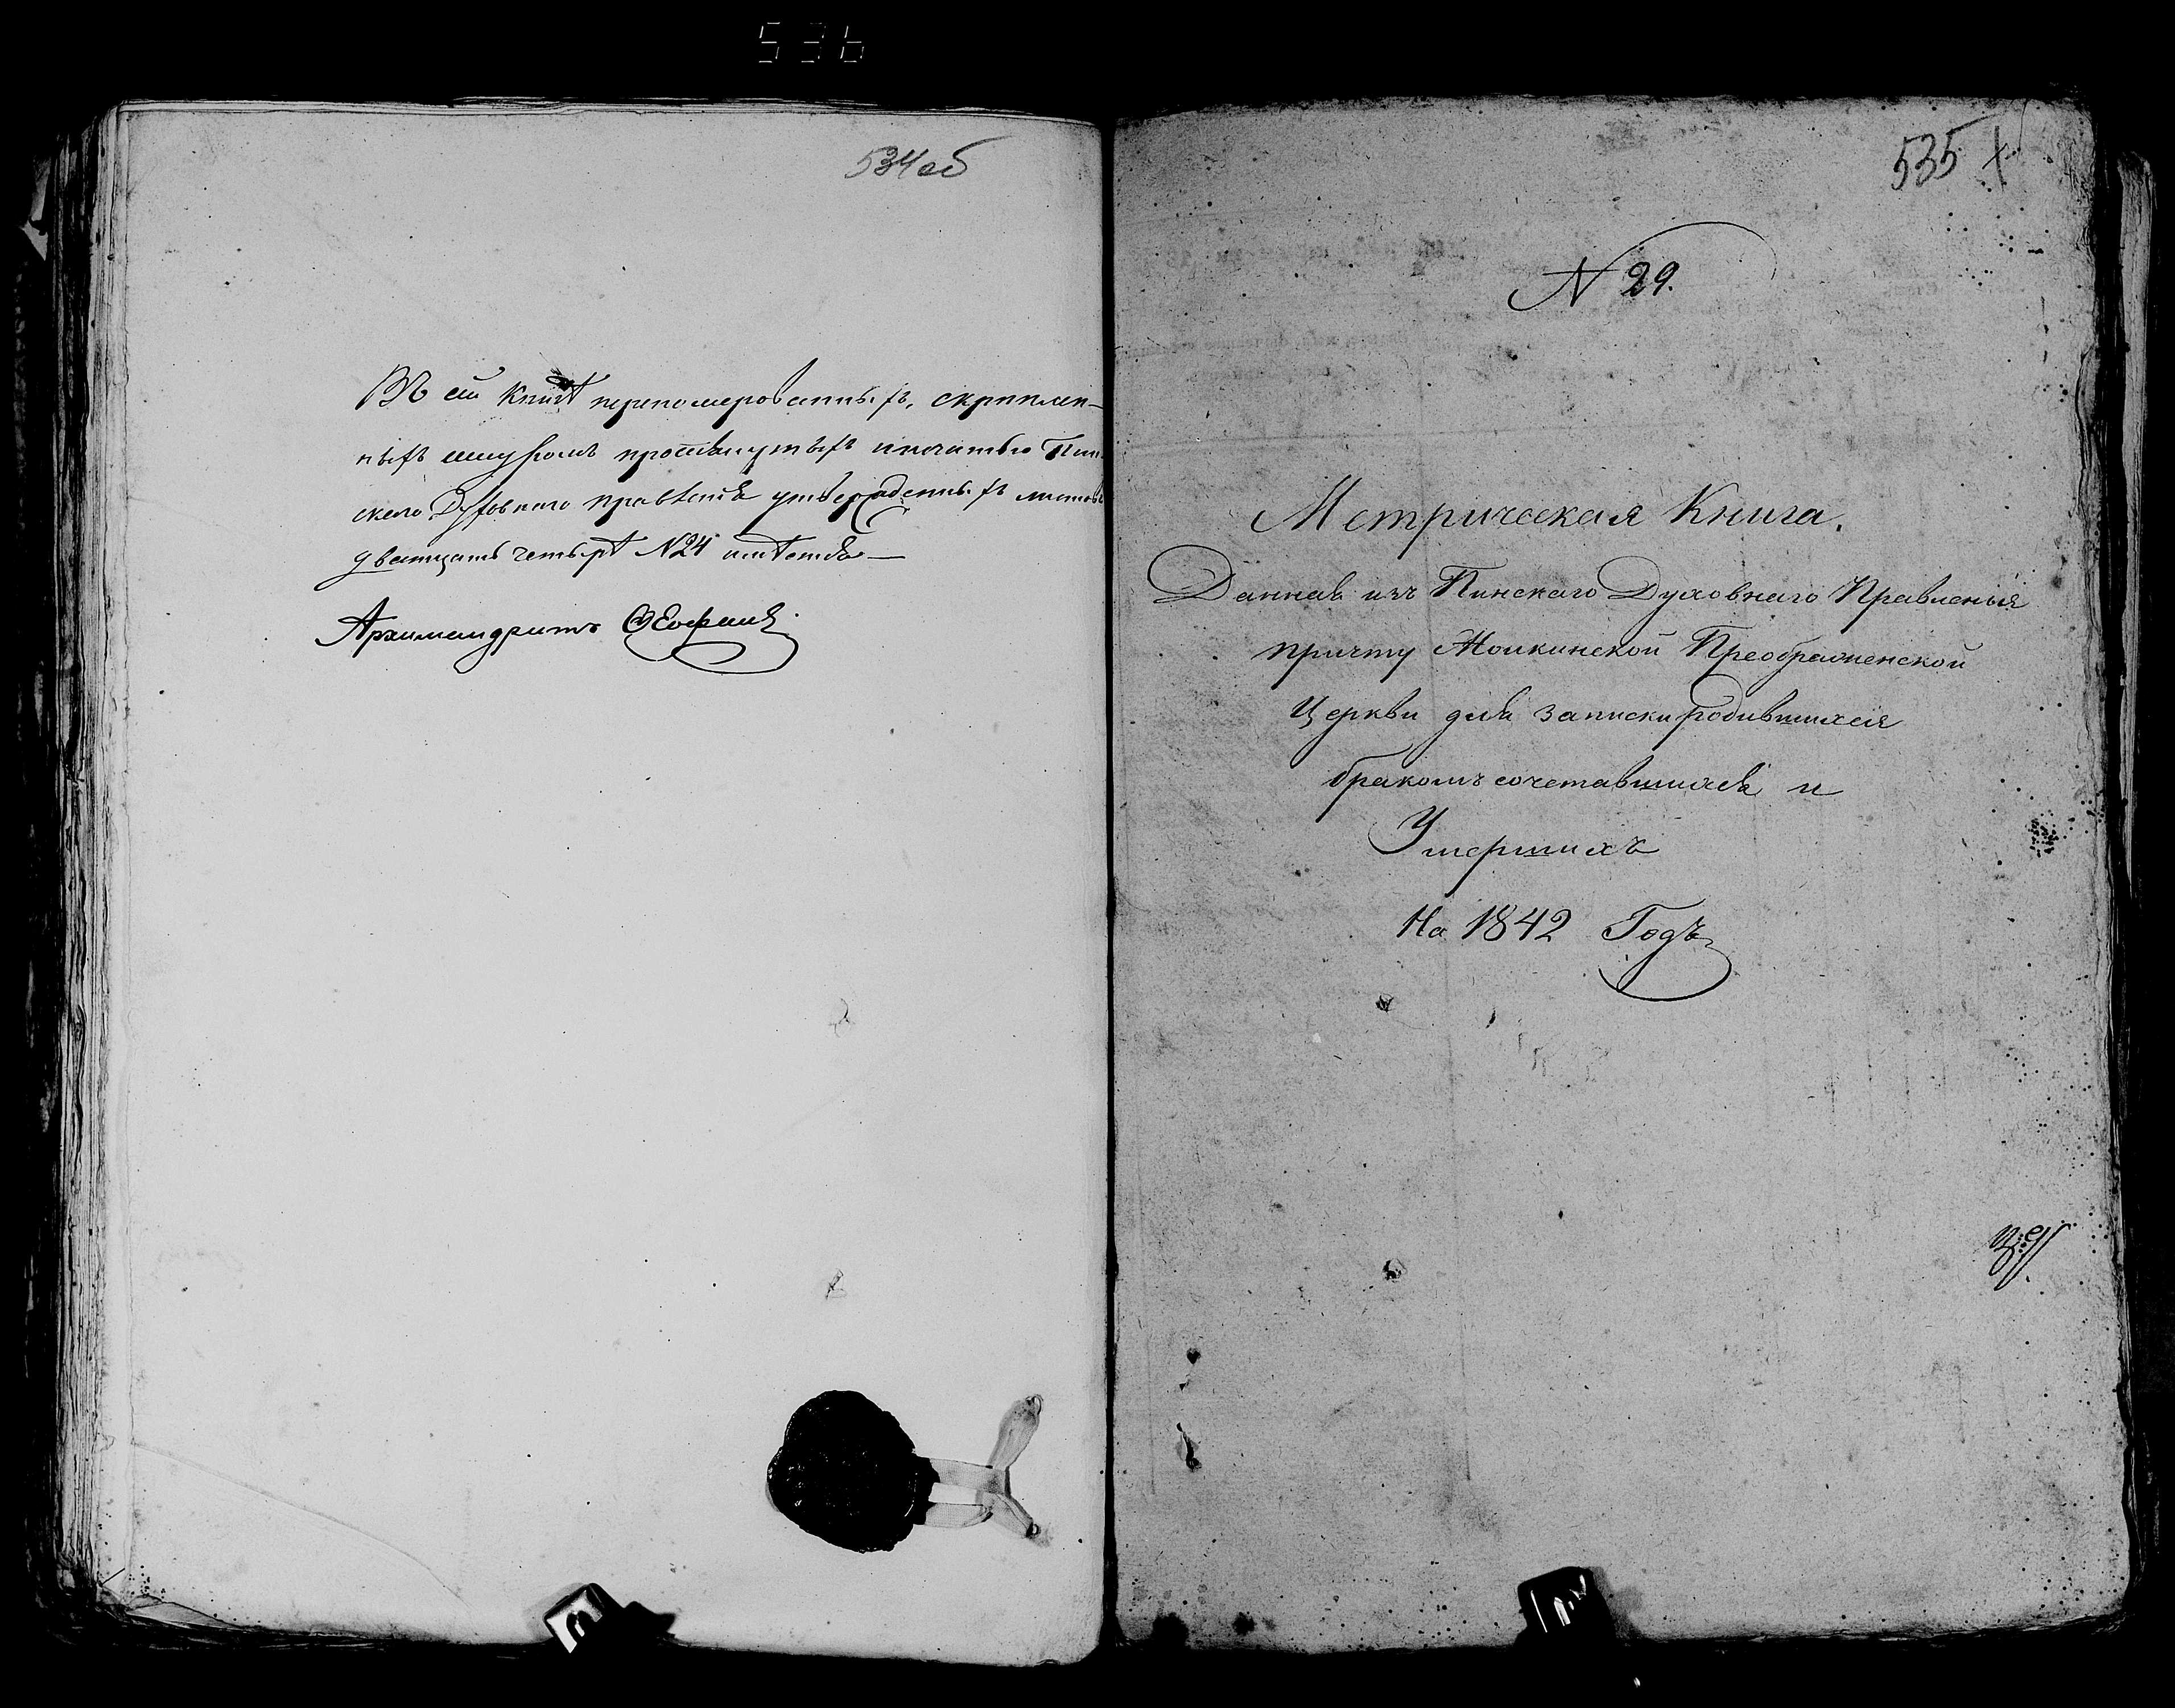 536
534об
Въ сей книгѣ перенумерованныхъ, скрѣплен-
ныхъ шнуромъ протянутыхъ и печатью Пин
скаго Духовнаго правленія утвержденныхъ листовъ
двадцать четыре №24 имѣется—
Архимандритъ
535
N 29.
Метрическая Книга.
Данная изъ Пинскаго Духовнаго Правленія
причту Преображенской
Церкви для записки родившихся
бракомъ сочетавшихся и
Умершихъ
На 1842 Годъ